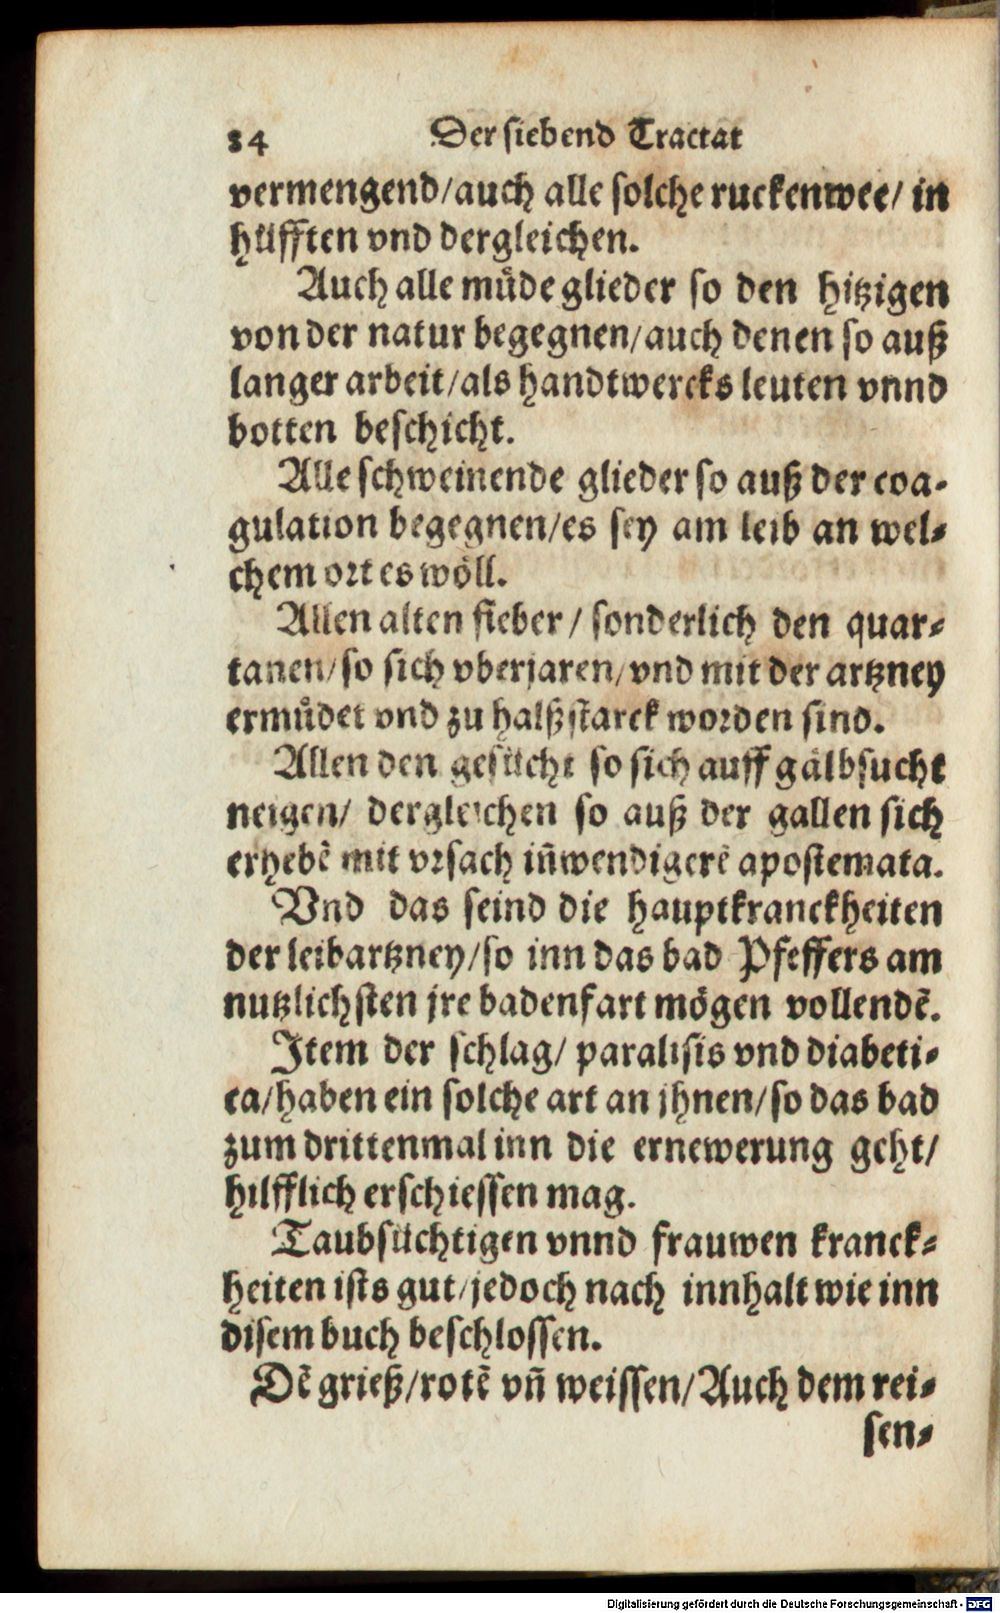 84 Der siebend Tractat
vermengend/auch alle solche ruckenwee/ in
hüfften vnd dergleichen.
Auch alle müde glieder so den hitzigen
von der natur begegnen/auch denen so auß
langer arbeit/als handtwercks leuten vnnd
botten beschicht.
Alle schweinende glieder so auß der coa-
gulation begegnen/es sey am leib an wel-
chem ort es wöll.
Allen alten fieber / sonderlich den quar-
tanen/so sich vberjaren/vnd mit der artzney
ermüdet vnd zu halßstarck worden sind.
Allen den gesücht so sich auff gälbsucht
neigen/ dergleichen so auß der gallen sich
erhebẽ mit vrsach iñwendigerẽ apostemata.
Vnd das seind die hauptkranckheiten
der leibartzney/so inn das bad Pfeffers am
nutzlichsten jre badenfart mögen vollendẽ.
Item der schlag/ paralisis vnd diabeti-
ca/haben ein solche art an jhnen/so das bad
zum drittenmal inn die ernewerung geht/
hilfflich erschiessen mag.
Taubsüchtigen vnnd frauwen kranck-
heiten ists gut/jedoch nach innhalt wie inn
disem buch beschlossen.
Dẽ grieß/rotẽ vñ weissen/Auch dem rei-
sen-
Digitalisierung gefördert durch die Deutsche Forschungsgemeinschaft - DFG